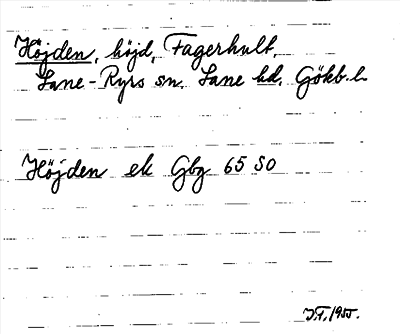 Höjden, höjd, Fagerhult,
Lane-Ryrs sn. Lane hd. Gökb. l.
Höjden ek Gbg 65 SO